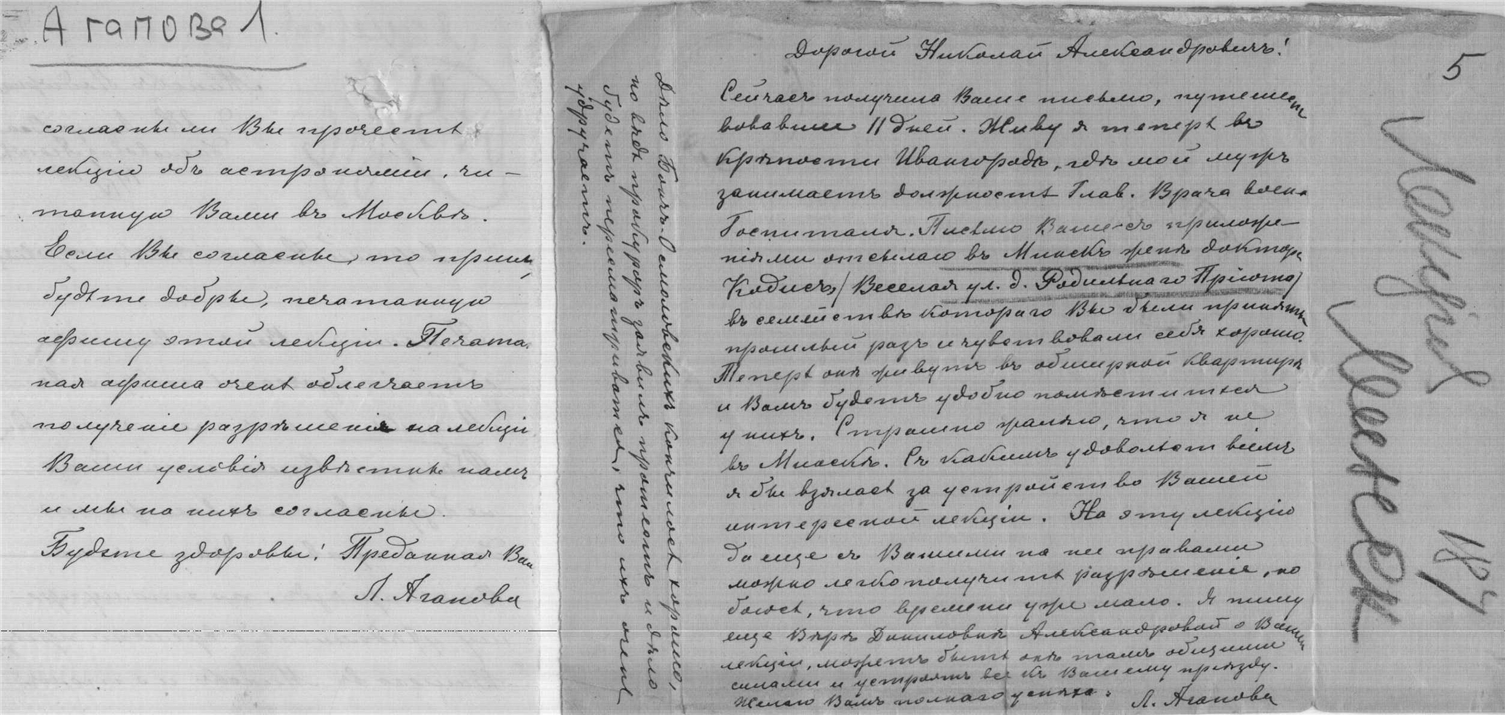 Агапова Л.
согласны ли Вы прочесть
лекцію объ астрономіи, чи-
танную Вами въ Москвѣ.
Если Вы согласны, то
будьте добры, печатанную
афишу этой лекціи. Печатан.
ная афиша очень облегчаетъ
полученіе разрѣшенія на лекціи
Ваши условія извѣстны намъ
и мы на нихъ согласны.
Будьте здоровы! Преданная Вам
Л. Агапова
Дѣло Осмоловскихъ кончилось хорошо,
но вѣдь прокуроръ заявилъ протестъ и дѣло
будетъ пересматриваться, что ихъ очень
удручаетъ.
5
Дорогой Николай Александровичъ!
Сейчасъ получила Ваше письмо, путешест
вовавшее 11 дней. Живу я теперь въ
крѣпости Ивангородѣ, гдѣ мой мужъ
занимаетъ должность Глав. Врача воен.
Госпиталя. Письмо Ваше съ приложе-
ніями отсылаю въ Минскъ женѣ доктора
Кодисъ (Веселая ул. д. Родильнаго Пріюта)
въ семействѣ котораго Вы были приняты
прошлый разъ и чувствовали себя хорошо.
Теперь онѣ живутъ въ обширной квартирѣ
и Вамъ будетъ удобно помѣститься
у нихъ. Страшно жалѣю, что я не
въ Минскѣ. Съ какимъ удовольствіемъ
я бы взялась за устройство Вашей
интересной лекціи. На эту лекцію
да еще съ Вашими на нее правами
можно легко получить разрѣшеніе, но
боюсь, что времени уже мало. Я пишу
еще Вѣрѣ Даниловнѣ Александровой о Вашей
лекціи, можетъ быть онѣ тамъ общими
силами и устроятъ все къ Вашему пріѣзду.
Желаю Вамъ полнаго успѣха.
Л. Агапова
Лекція
Минск